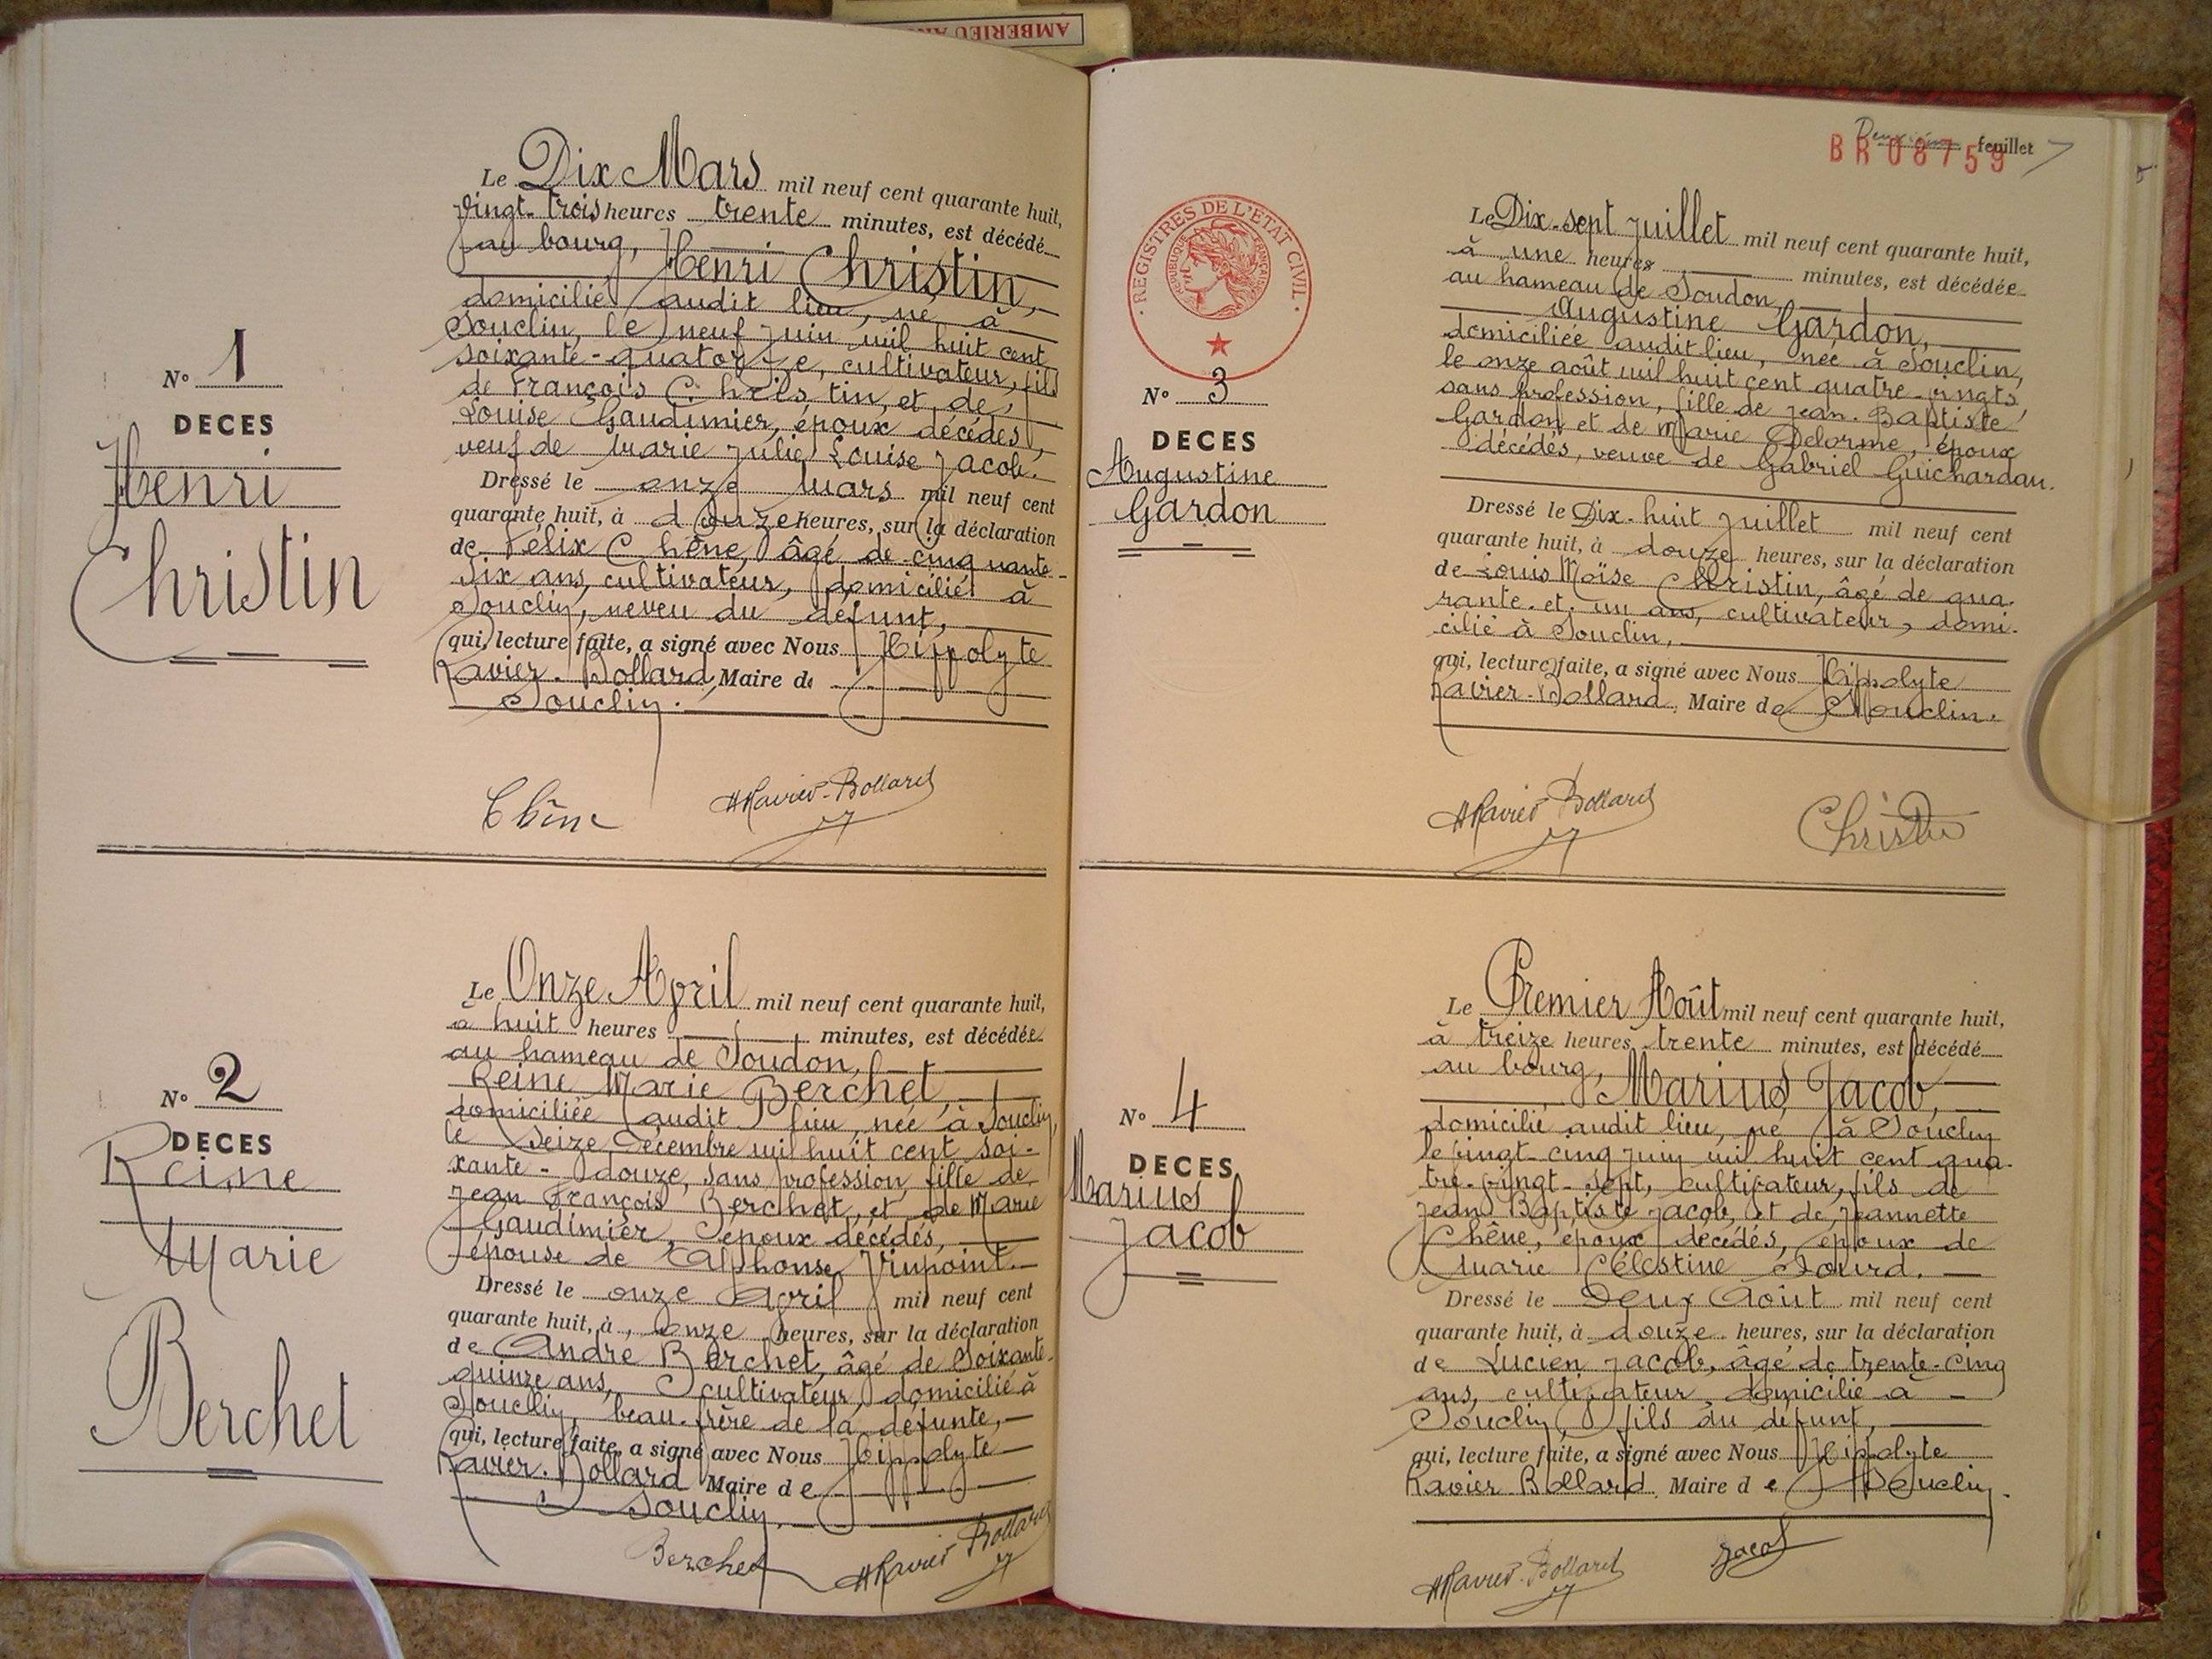 AMBERIEU
Le Dix Mars mil neuf cent quarante huit,
vingt-trois heures trente minutes, est décédé
au bourg,
Henri Christin,
domicilié audit lieu, né à
Souclin, le neuf juin mil huit cent
soixante-quatorze, cultivateur, fils
de François Christin, et de
Louise Gaudimier, époux décédés,
veuf de Marie Julie Louise Jacob.
Dressé le onze Mars mil neuf cent
quarante huit, à douze heures, sur la déclaration
de Félix Chêne, âgé de cinquante-
six ans, cultivateur, domicilié à
Souclin, neveu du défunt,
qui, lecture faite, a signé avec Nous Hippolyte
Ravier-Bollard, Maire de
Souclin.
N° 1
DECES
Henri
Christin
Chêne
HRavier-Bollard
Le Onze Avril mil neuf cent quarante huit,
à huit heures minutes, est décédée
au hameau de Soudon,
Reine Marie Berchet,
domiciliée audit lieu, née à Souclin,
le seize Décembre mil huit cent soi-
xante-douze, sans profession, fille de
Jean François Berchet, et de Marie
Gaudimier, époux décédés,
épouse de Alphonse Trinpoint.
Dressé le onze Avril mil neuf cent
quarante huit, à onze heures, sur la déclaration
de André Berchet, âgé de soixante-
quinze ans, cultivateur, domicilié à
Souclin, beau-frère de la défunte,
qui, lecture faite, a signé avec Nous Hippolyte
Ravier-Bollard Maire de
Souclin.
N° 2
DECES
Reine
Marie
Berchet
Berchet
HRavier-Bollard
Deuxième feuillet
BR 08759
7
REGISTRES DE L'ETAT CIVIL
REPUBLIQUE FRANÇAISE
Le Dix-sept Juillet mil neuf cent quarante huit,
à une heures minutes, est décédée
au hameau de Soudon,
Augustine Gardon,
domiciliée audit lieu, née à Souclin,
le onze août mil huit cent quatre-vingts,
sans profession, fille de Jean-Baptiste
Gardon et de Marie Delorme, époux
décédés, veuve de Gabriel Guichardan.
Dressé le Dix-huit Juillet mil neuf cent
quarante huit, à douze heures, sur la déclaration
de Louis Moïse Christin, âgé de qua-
rante-et-un ans, cultivateur, domi-
cilié à Souclin,
qui, lecture faite, a signé avec Nous Hippolyte
Ravier-Bollard, Maire de Souclin.
N° 3
DECES
Augustine
Gardon
HRavier-Bollard
Christin
Le Premier Août mil neuf cent quarante huit,
à treize heures trente minutes, est décédé
au bourg,
Marius Jacob,
domicilié audit lieu, né à Souclin
le vingt-cinq juin mil huit cent qua-
tre-vingt-sept, cultivateur, fils de
Jean Baptiste Jacob, et de Jeannette
Chêne, époux décédés, époux de
Marie Célestine Sourd.
Dressé le Deux Août mil neuf cent
quarante huit, à douze heures, sur la déclaration
de Lucien Jacob, âgé de trente-cinq
ans, cultivateur, domicilié à
Souclin, fils du défunt,
qui, lecture faite, a signé avec Nous Hippolyte
Ravier Bollard, Maire de Souclin.
N° 4
DECES
Marius
Jacob
HRavier-Bollard
Jacob